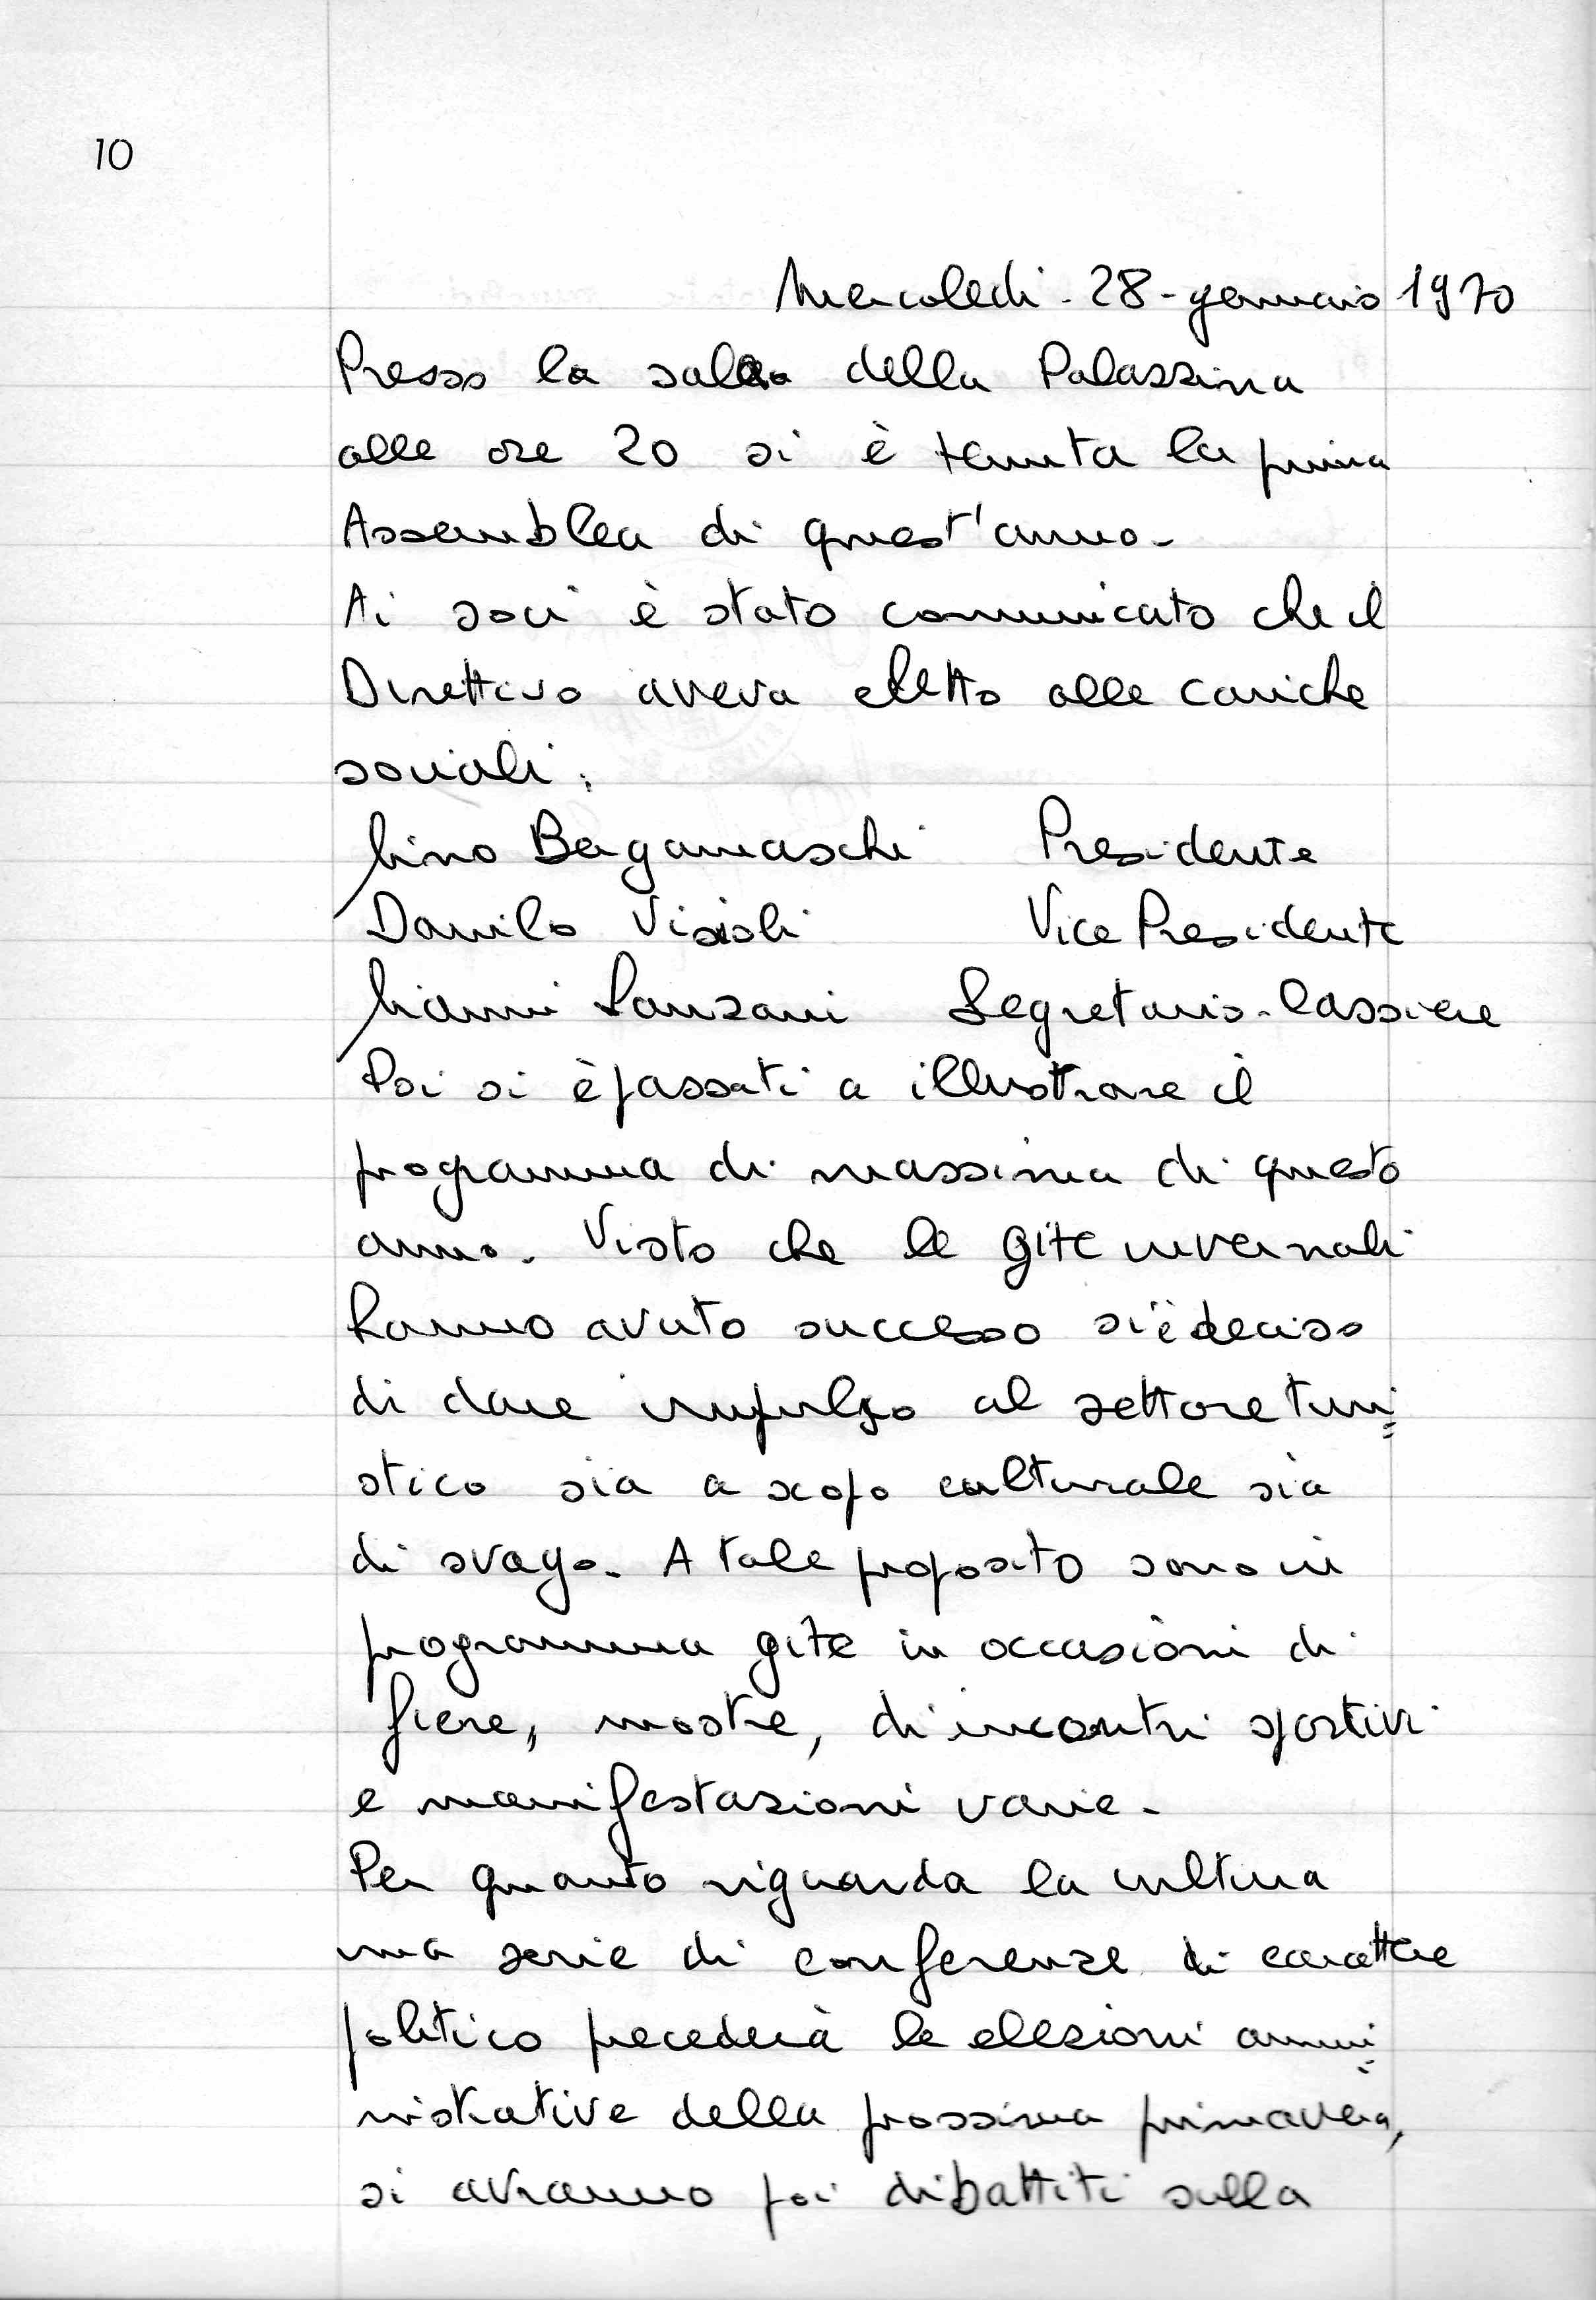 10
Mercoledì - 28 - gennaio 1970
Presso la sala della Palazzina
alle ore 20 si è tenuta la prima
Assemblea di quest'anno -
Ai soci è stato comunicato che il
Direttivo aveva eletto alle cariche
sociali:
Gino Bergamaschi Presidente
Danilo Visioli Vice Presidente
Gianni Lanzani Segretario - Cassiere
Poi si è passati a illustrare il
programma di massima di questo
anno. Visto che le gite invernali
hanno avuto successo si è deciso
di dare impulso al settore turi=
stico sia a scopo culturale sia
di svago. A tale proposito sono in
programma gite in occasioni di
fiere, mostre, di incontri sportivi
e manifestazioni varie -
Per quanto riguarda la cultura
una serie di conferenze di carattere
politico precederà le elezioni ammi=
nistrative della prossima primavera,
si avranno poi dibattiti sulla